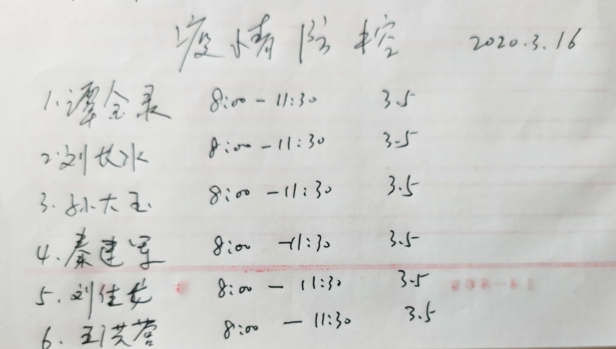 疫情防控 2020.3.16
1. 谭金录 8:00-11:30 3.5
2. 刘长水 8:00-11:30 3.5
3. 孙大玉 8:00-11:30 3.5
4. 秦建军 8:00-11:30 3.5
5. 刘佳龙 8:00-11:30 3.5
6. 王洪营 8:00-11:30 3.5